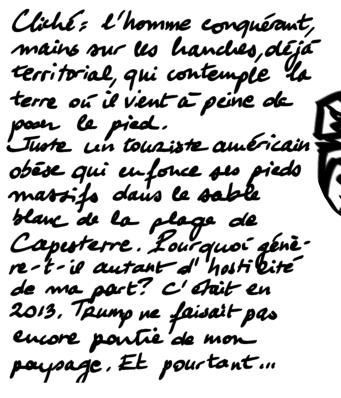 Cliché : l'homme conquérant,
mains sur les hanches, déjà
territorial, qui contemple la
terre où il vient à peine de
poser le pied.
Juste un touriste américain
obèse qui enfonce ses pieds
massifs dans le sable
blanc de la plage de
Capesterre. Pourquoi génè-
re-t-il autant d'hostilité
de ma part? C'était en
2013. Trump ne faisait pas
encore partie de mon
paysage. Et pourtant...